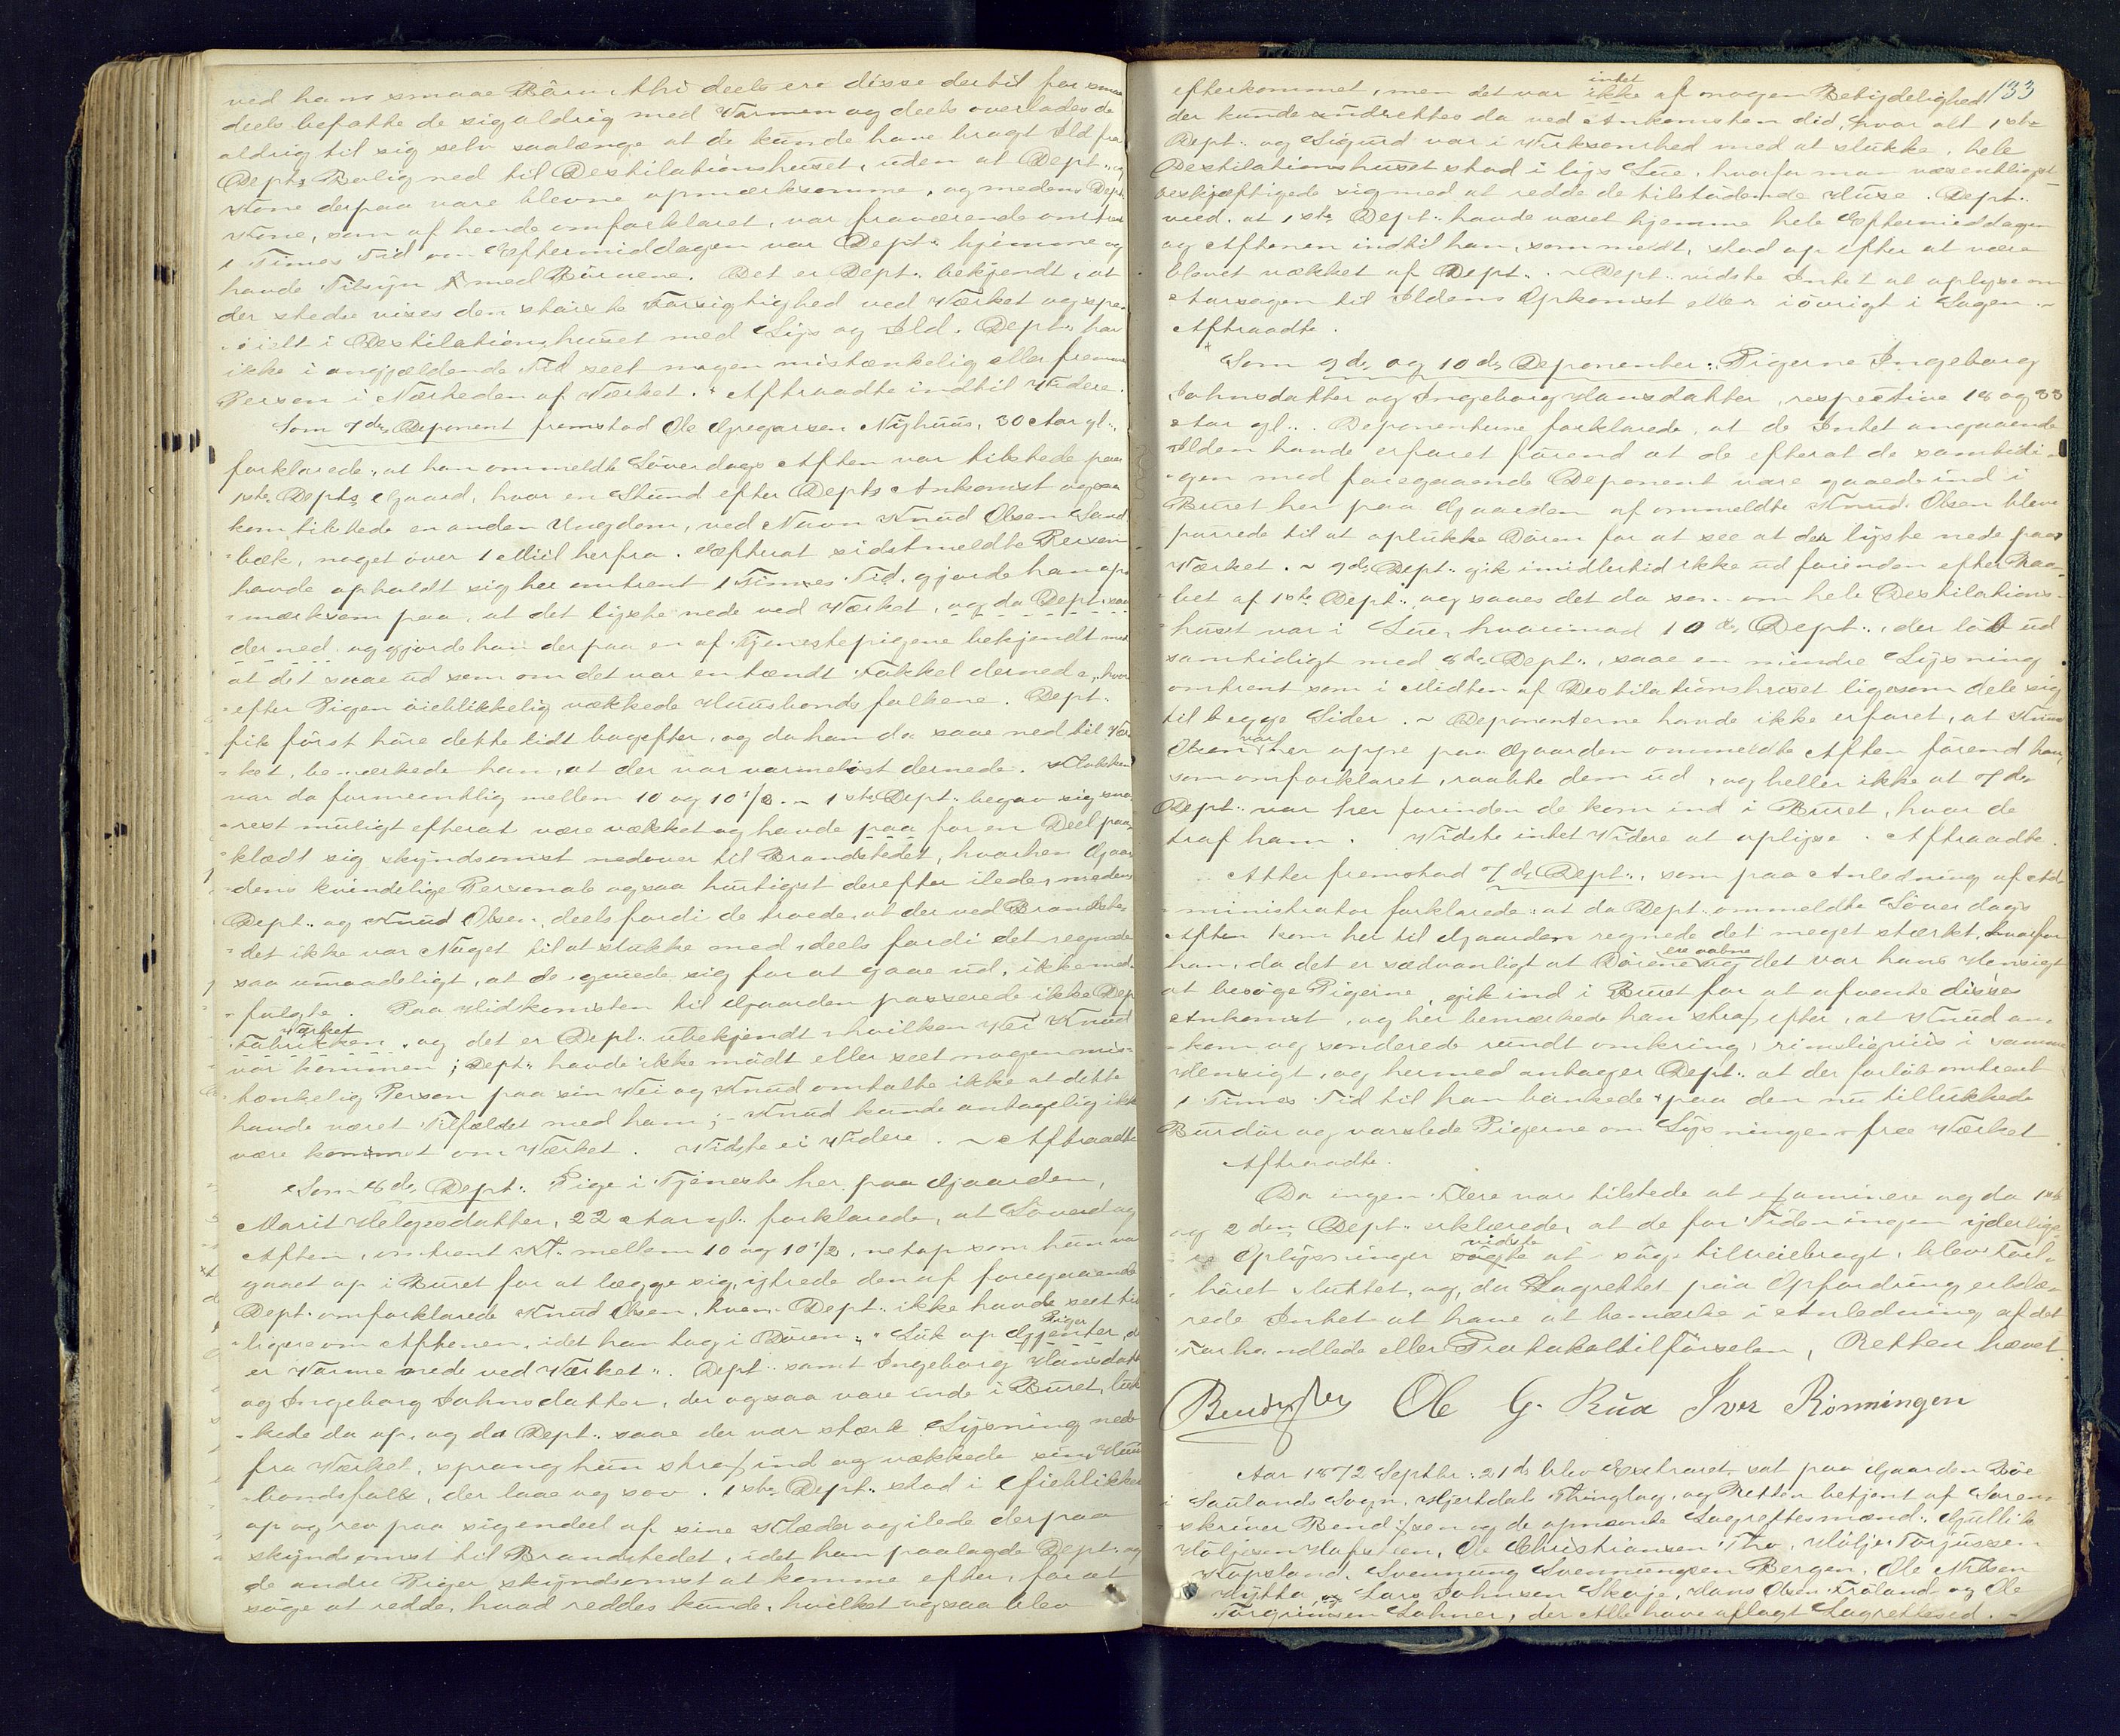 ved hans smaae Børn, thi deels ere disse dertil for smaae
deels befatte de sig aldrig med Varmen og deels overlades de
aldrig til sig selv saalænge at de kunde have bragt Ild fra
Depts Bolig ned til Destilationshuset, uden at Dept.. og
Kone derpaa vare blevne opmærksomme, og medens Depts
Kone, som af hende omforklaret, var fraværende omtrent
1 Times Tid om Eftermiddagen var Dept.. hjemme og
havde Tilsyn med Børnene. Det er Dept.. bekjendt, at
der stedse vises den største Forsigtighed ved Værket og spe-
cielt i Destilationshuset med Lys og Ild. Dept.. har
ikke i angjældende Tid seet nogen mistænkelig eller fremmed
Person i Nærheden af Værket. Aftraadte indtil Videre.
Som 7de Deponent fremstod Ole Gregarsen Nyhuus, 30 Aar gl..,
forklarede, at han ommeldte Löverdags Aften var tilstede paa
1ste Depts Gaard, hvor en Stund efter Depts Ankomst ogsaa
kom tilstede en anden Ungdom, ved Navn Knud Olsen Sand-
bæk, noget over 1 Miil herfra. Efterat sidstmeldte Person
havde opholdt sig her omtrent 1 Times Tid, gjorde han op-
mærksom paa, at det lyste nede ved Værket, og da Dept.. saae
der ned, og gjorde han derpaa en af Tjenestepigene bekjendt med
at det saae ud som om det var en tændt Fakkel dernede, hvor-
efter Pigen øieblikkelig vækkede Huusbondsfolkene. Dept..
fik först høre dette lidt bagefter, og da han da saae ned til Vær-
ket, bemærkede han, at der var varmeløst dernede. Klokken
var da formeentlig mellem 10 og 10 1/2. - 1ste Dept.. begav sig sna-
rest muligt efterat være vækket og havde paa for en Deel paa-
klædt sig skyndsomst nedover til Brandstedet, hvorhen Gaar-
dens kvindelige Personale ogsaa hurtigst derefter ilede, medens
Dept.. og Knud Olsen, deels fordi de troede, at der ved Brandste-
det ikke var Noget til at slukke med, deels fordi det regnede
saa umaadeligt, at de gruede sig for at gaae ud, ikke med-
fulgte. Paa Hidkomsten til Gaarden passerede ikke Dept
Værket
Fabrikken, og det er Dept.. ubekjendt hvilken Vei Knud
var kommen; Dept.. havde ikke mödt eller seet nogen mis-
tænkelig Person paa sin Vei og Knud omtalte ikke at dette
havde været Tilfældet med ham; - Knud kunde antagelig ikke
være kommet om Værket. Vidste ei Videre. ~ Aftraadte
Som 8de Dept.. Pige i Tjeneste her paa Gaarden,
Marit Helgesdatter, 22 Aar gl.. forklarede, at Löverdag
Aften, omtrent Kl. mellem 10 og 10 1/2, netop som hun var
gaaet op i Buret for at lægge sig, ytrede den af foregaaende
Dept. omforklarede Knud Olsen, hvem Dept.. ikke havde seet tid-
ligere om Aftenen, idet han tog i Døren: "Luk op Gjenter, der
Piger
er Varme nede ved Værket". Dept.. samt Ingeborg Hansdatter
og Ingeborg Johnsdatter, der ogsaa vare inde i Buret, luk-
kede da op, og da Dept.. saae der var stærk Lysning nede
fra Værket, sprang hun strax ind og vækkede sine Huus-
bondsfolk, der laae og sov. 1ste Dept.. stod i Øieblikket
op og rev paa sig endeel af sine Klæder og ilede derpaa
skyndsomst til Brandstedet, idet han paalagde Dept.. og
de andre Piger skyndsomst at komme efter, for at
søge at redde, hvad reddes kunde, hvilket ogsaa blev
133
intet
efterkommet, men det var ikke af nogen Betydelighed
der kunde udrettes da ved Ankomsten did, hvor alt 1ste
Dept.. og Sigurd var i Virksomhed med at slukke, hele
Destilationshuset stod i lys Lue, hvorfor man væsentligst
beskjæftigede sig med at redde de tilstødende Huse. Dept..
veed, at 1ste Dept.. havde været hjemme hele Eftermiddagen
og Aftenen indtil han, som meldt, stod op efter at være
blevet vækket af Dept.. ~ Dept.. vidste Intet at oplyse om
Aarsagen til Ildens Opkomst eller iøvrigt i Sagen. ~
Aftraadte.
Som 9de og 10de Deponenter: Pigerne Ingeborg
Johnsdatter og Ingeborg Hansdatter, respective 18 og 33
Aar gl... Deponenterne forklarede, at de Intet angaaende
Ilden havde erfaret förend at de efterat de samtidi-
gen med foregaaende Deponent vare gaaede ind i
Buret her paa Gaarden af ommeldte Knud Olsen bleve
purrede til at oplukke Dören for at see at der lyste nede paa
Værket. ~ 9de Dept.. gik imidlertid ikke ud förinden efter Raa-
bet af 1ste Dept.. og saaes det da som om hele Destilations-
huset var i Lue, hvorimod 10de Dept.., der löb ud
samtidigt med 8de Dept.., saae en mindre Lysning
omtrent som i Midten af Destilationshuset ligesom dele sig
til begge Sider. ~ Deponenterne havde ikke erfaret, at Knud
var
Olsen her oppe paa Gaarden ommeldte Aften förend han,
som omforklaret, raabte dem ud, og heller ikke at 7de
Dept.. var her forinden de kom ind i Buret, hvor de
traf ham. Vidste intet Videre at oplyse. Aftraadte.
Atter fremstod 7de Dept.., som paa Anledning af Ad-
ministrator forklarede: at da Dept.. ommeldte Löverdags
Aften kom her til Gaarden regnede det meget stærkt, hvorfor
ere aabne
han, da det er sædvanligt at Dörene og det var hans Hensigt
at besöge Pigerne, gik ind i Buret for at afvente disses
Ankomst, og her bemærkede han strax efter, at Knud an-
kom og sonderede rundt omkring, rimeligviis i samme
Hensigt, og hermed antager Dept.. at der forløb omtrent
1 Times Tid til han bankede paa den nu tillukkede
Burdör og varslede Pigerne om Lysningen fra Værket.
Aftraadte.
Da ingen Flere var tilstede at examinere og da 1ste
og 2den Dept.. erklærede, at de for Tiden ingen yderlige-
vidste
re Oplysninger søgte at søge tilveiebragt, blev For-
höret sluttet, og, da Lagrettet paa Opfordring erklæ-
rede Intet at have at bemærke i Anledning af det
Forhandlede eller Protokoltilførselen, Retten hævet.
Ole G. Rua Iver Rønningen
Aar 1872 Septbr: 21de blev Extraret sat paa Gaarden Böe
i Saulands Sogn, Hjertdals Thinglag, og Retten betjent af Soren-
skriver Bendixen og de opnævnte Lagrettesmænd: Gullik
Høljesen, Ole Christiansen Tho, Hølje Torjussen
Hapsland, Svennung Svennungsen Bergen, Ole Nilsen
Hytta, og Lars Johnsen Skoje, Hans Olsen Fröland og Ole
Torgrimsen Lohner, der Alle have aflagt Lagretteseed. -